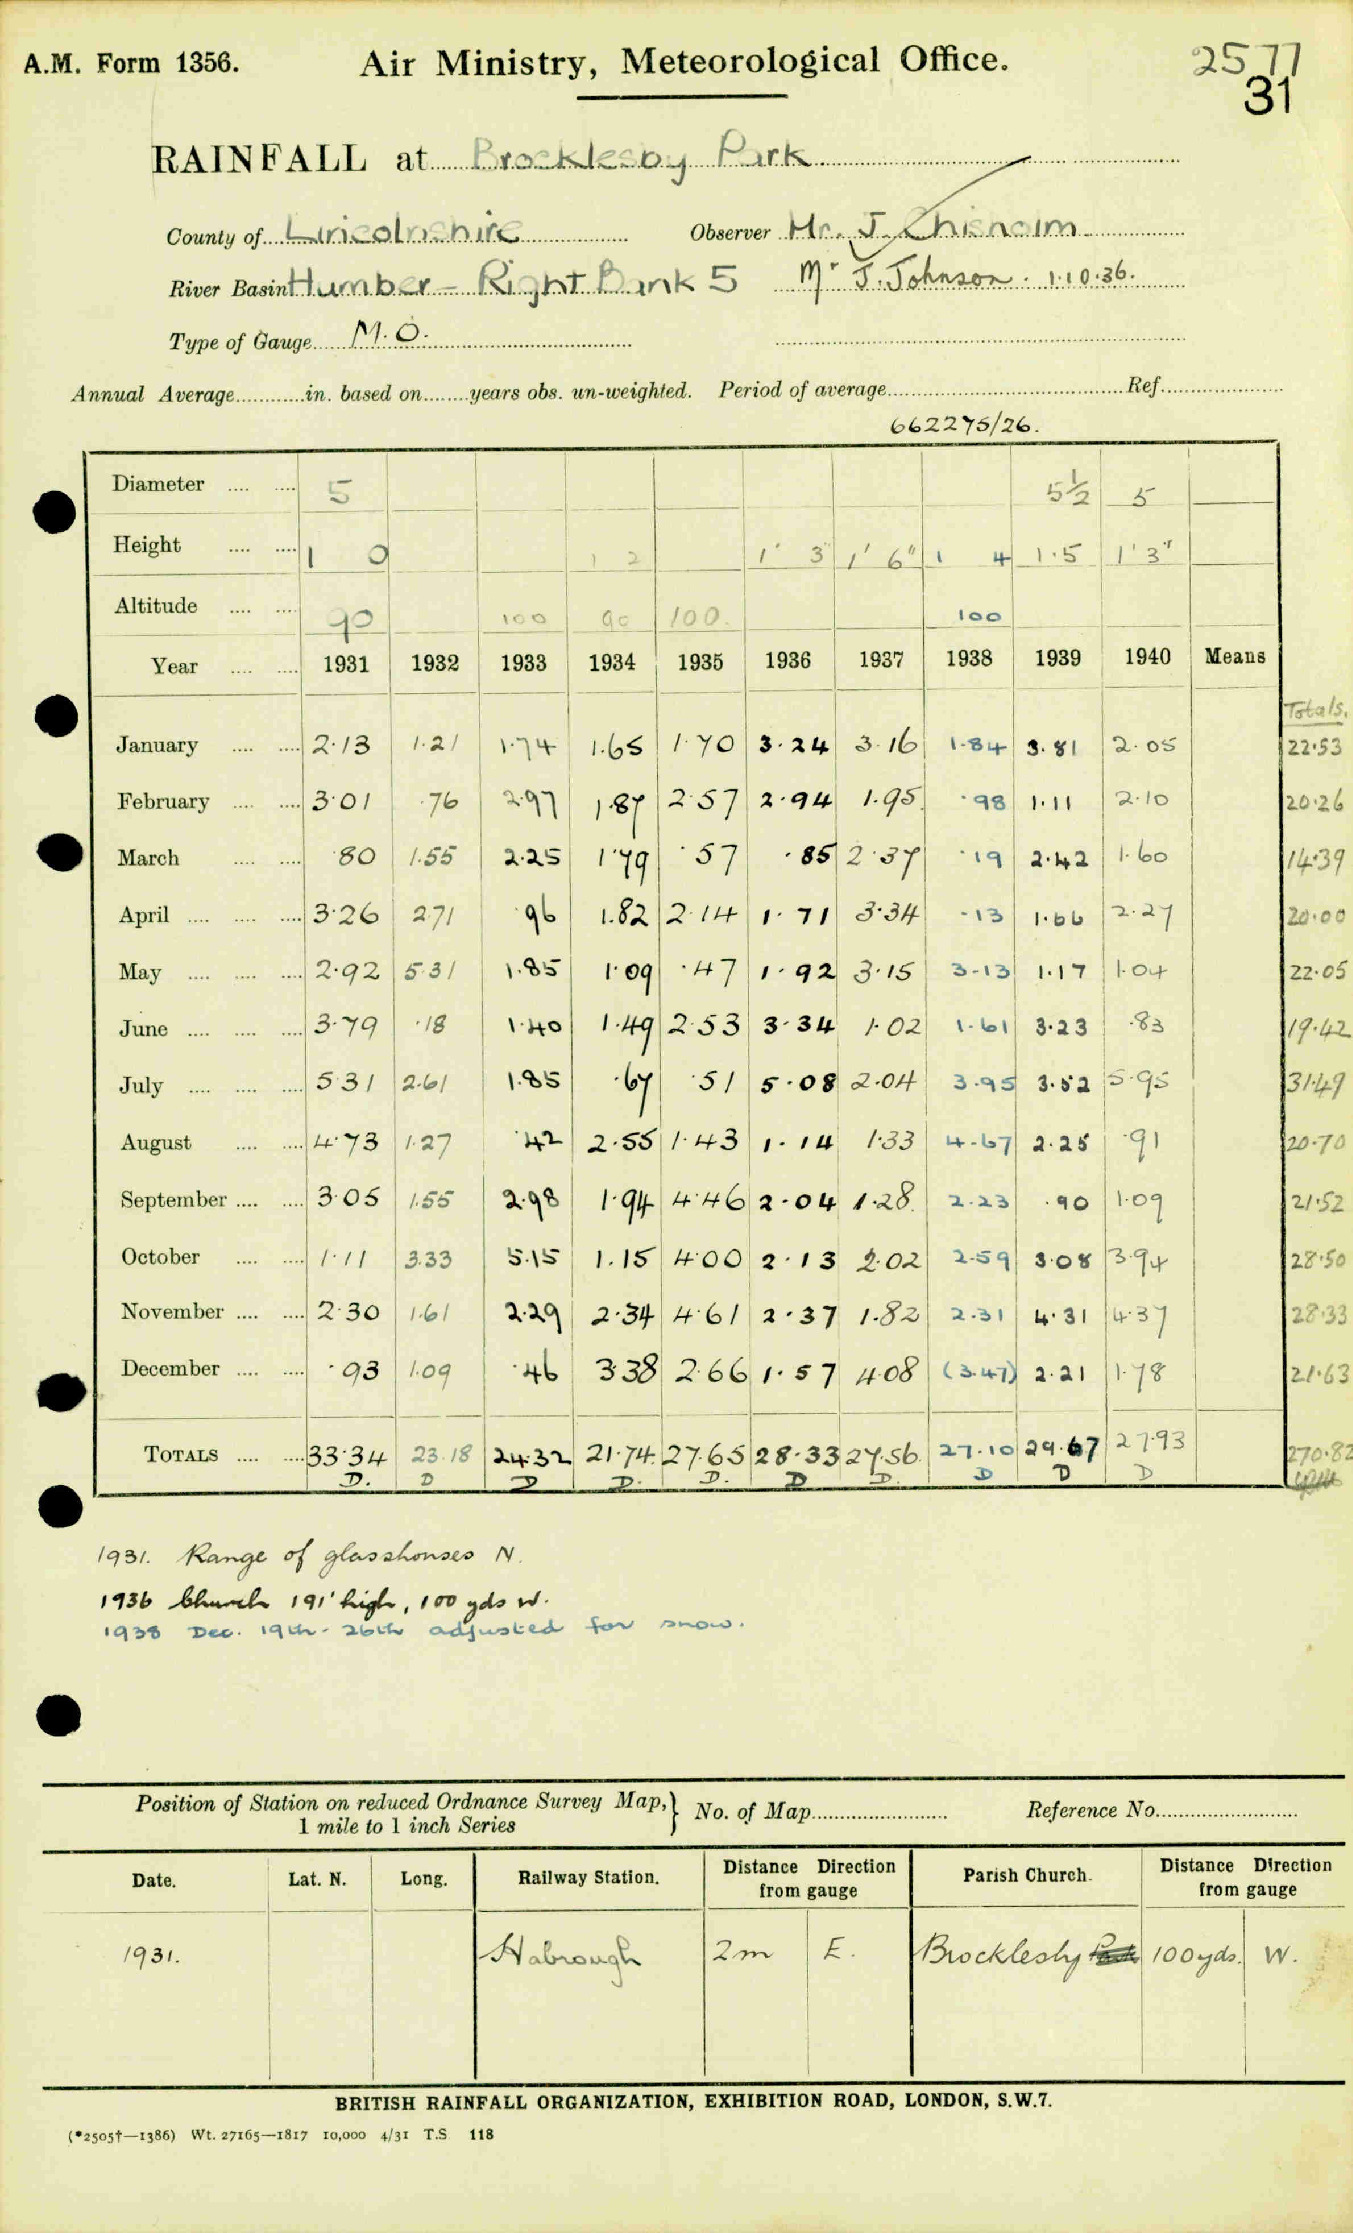 A.M. Form 1356. Air Ministry, Meteorological Office. 2577
31
RAINFALL at Brocklesby Park
County of Lincolnshire Observer Mr. J. Chisholm
River Basin Humber - Right Bank 5 Mr J. Johnson. 1.10.36.
Type of Gauge M.O.
Annual Average in. based on years obs. un-weighted. Period of average Ref.
662275/26.
Diameter 5 5½ 5
Height 1 0 1 2 1' 3" 1' 6" 1 4 1.5 1' 3"
Altitude 90 100 90 100. 100
Year 1931 1932 1933 1934 1935 1936 1937 1938 1939 1940 Means
Totals.
January 2.13 1.21 1.74 1.65 1.70 3.24 3.16 1.84 3.81 2.05 22.53
February 3.01 .76 2.97 1.87 2.57 2.94 1.95 .98 1.11 2.10 20.26
March .80 1.55 2.25 1.79 .57 .85 2.37 .19 2.42 1.60 14.39
April 3.26 2.71 .96 1.82 2.14 1.71 3.34 .13 1.66 2.27 20.00
May 2.92 5.31 1.85 1.09 .47 1.92 3.15 3.13 1.17 1.04 22.05
June 3.79 .18 1.40 1.49 2.53 3.34 1.02 1.61 3.23 .83 19.42
July 5.31 2.61 1.85 .67 .51 5.08 2.04 3.95 3.52 5.95 31.49
August 4.73 1.27 .42 2.55 1.43 1.14 1.33 4.67 2.25 .91 20.70
September 3.05 1.55 2.98 1.94 4.46 2.04 1.28 2.23 .90 1.09 21.52
October 1.11 3.33 5.15 1.15 4.00 2.13 2.02 2.59 3.08 3.94 28.50
November 2.30 1.61 2.29 2.34 4.61 2.37 1.82 2.31 4.31 4.37 28.33
December .93 1.09 .46 3.38 2.66 1.57 4.08 (3.47) 2.21 1.78 21.63
TOTALS 33.34 23.18 24.32 21.74 27.65 28.33 27.56 27.10 29.67 27.93 270.82
D. D D D. D. D D. D D D
1931. Range of glasshouses N.
1936 Church 191' high, 100 yds W.
1938 Dec. 19th - 26th adjusted for snow.
Position of Station on reduced Ordnance Survey Map, } No. of Map Reference No.
1 mile to 1 inch Series
Date. Lat. N. Long. Railway Station. Distance Direction from gauge Parish Church. Distance Direction from gauge
1931. Habrough 2m E. Brocklesby 100 yds. W.
BRITISH RAINFALL ORGANIZATION, EXHIBITION ROAD, LONDON, S.W.7.
(*2505†—1386) Wt. 27165—1817 10,000 4/31 T.S. 118